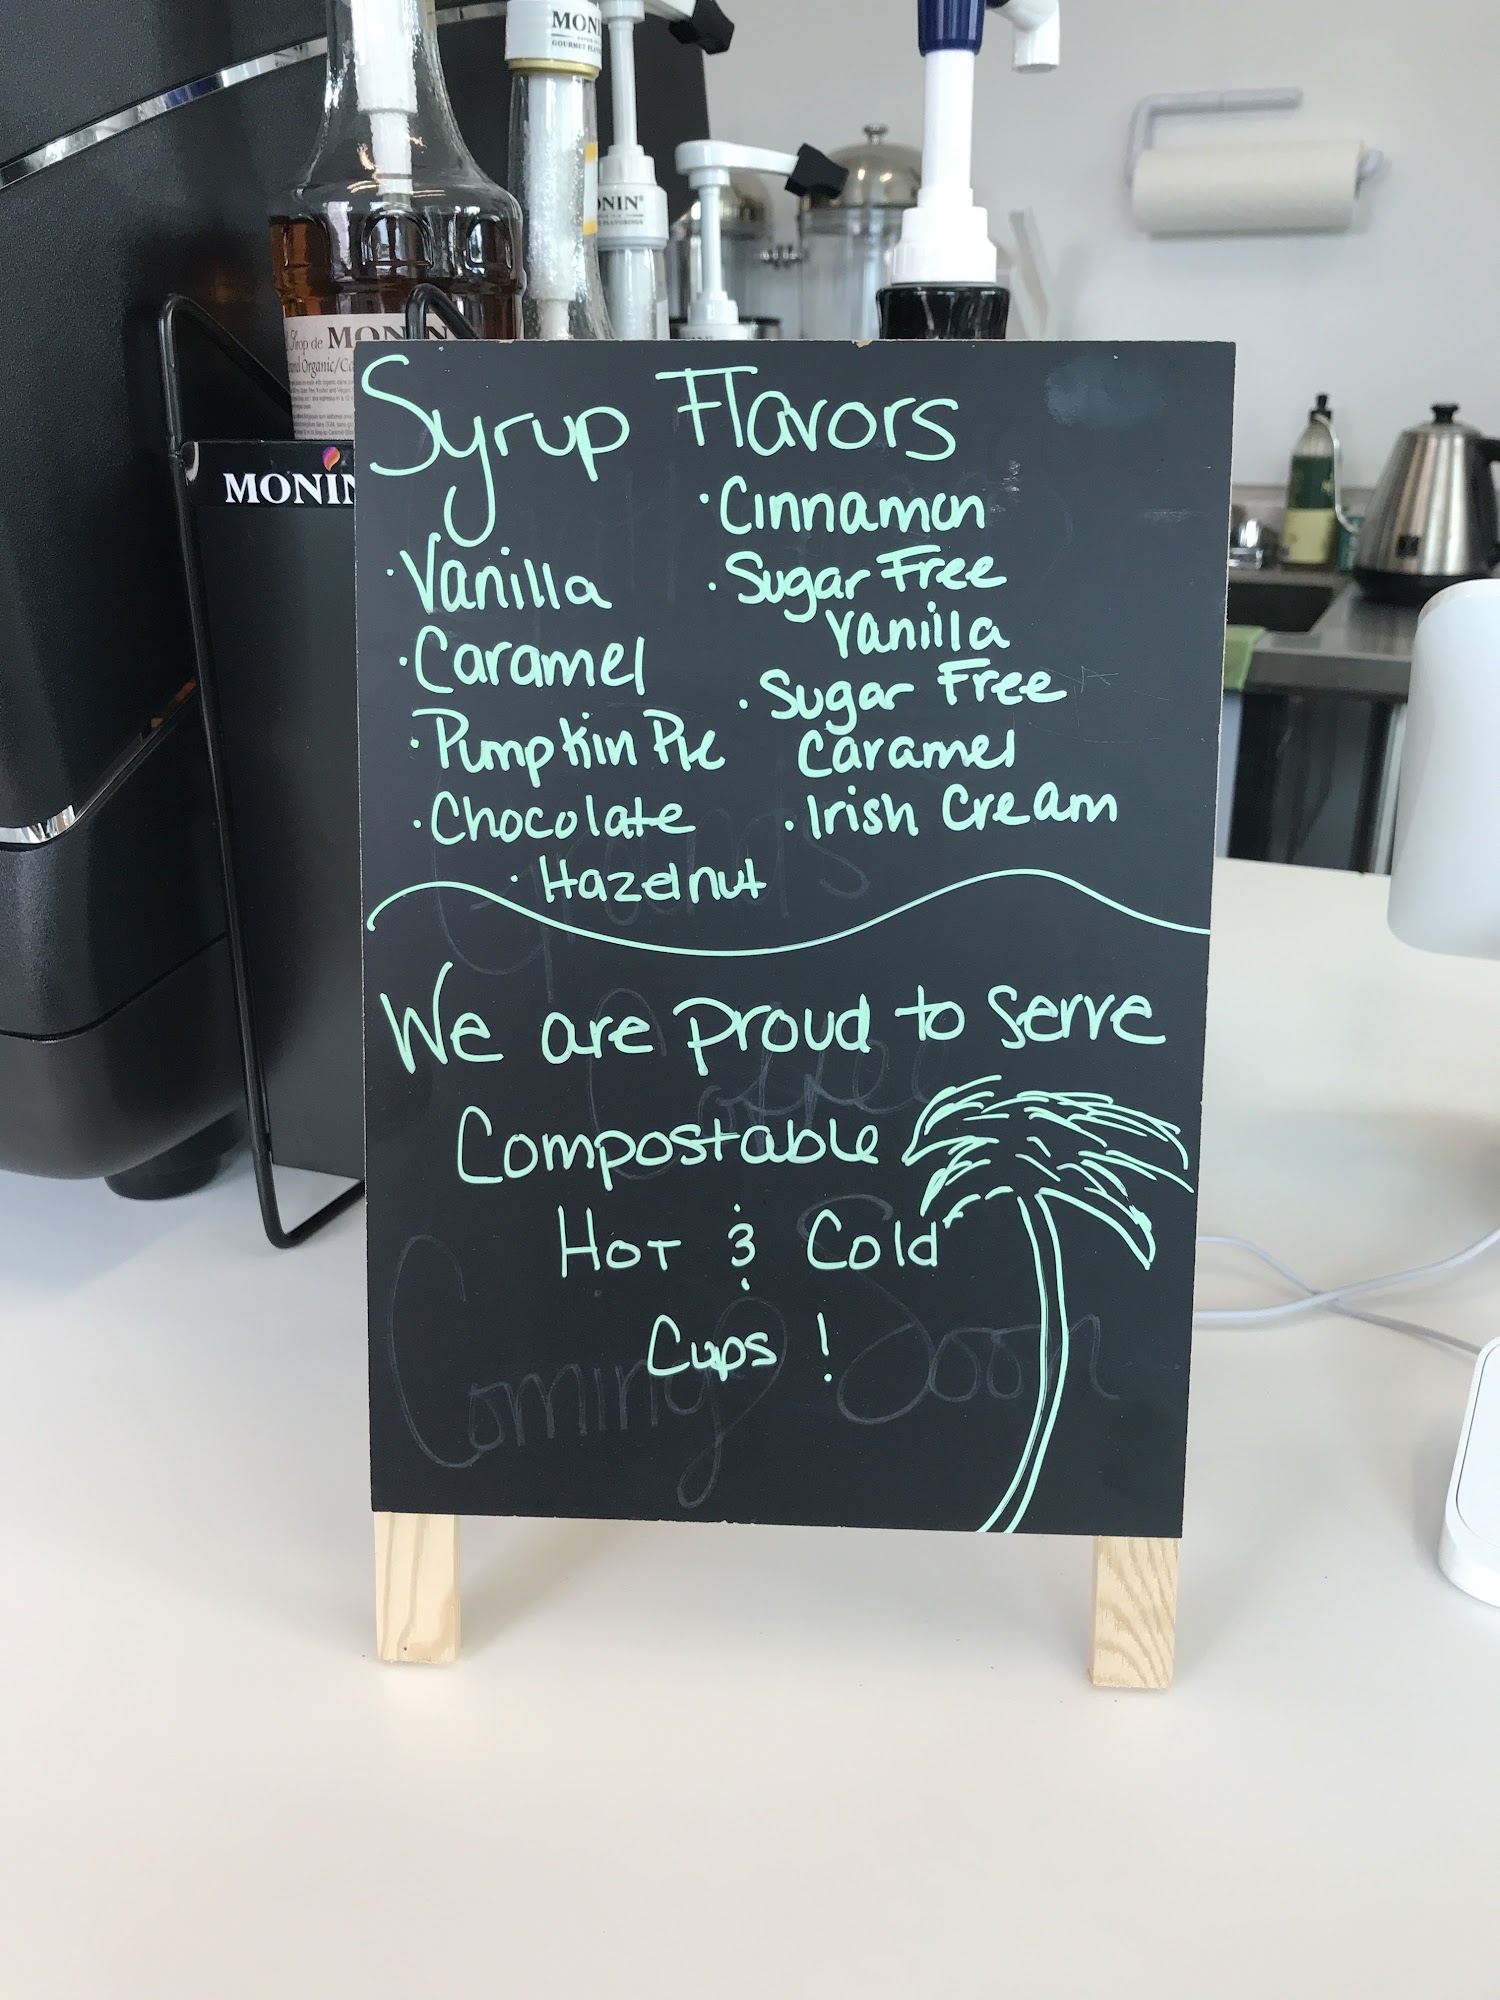 MONIN
GOURMET FLAVORINGS
MONIN
Sirop de MONIN
Organic/
MONIN
Syrup Flavors
· Vanilla
· Caramel
· Pumpkin Pie
· Chocolate
· Hazelnut
· Cinnamon
· Sugar Free
Vanilla
· Sugar Free
Caramel
· Irish Cream
We are proud to serve
Compostable
Hot & Cold
Cups !
Coffee
Coming Soon